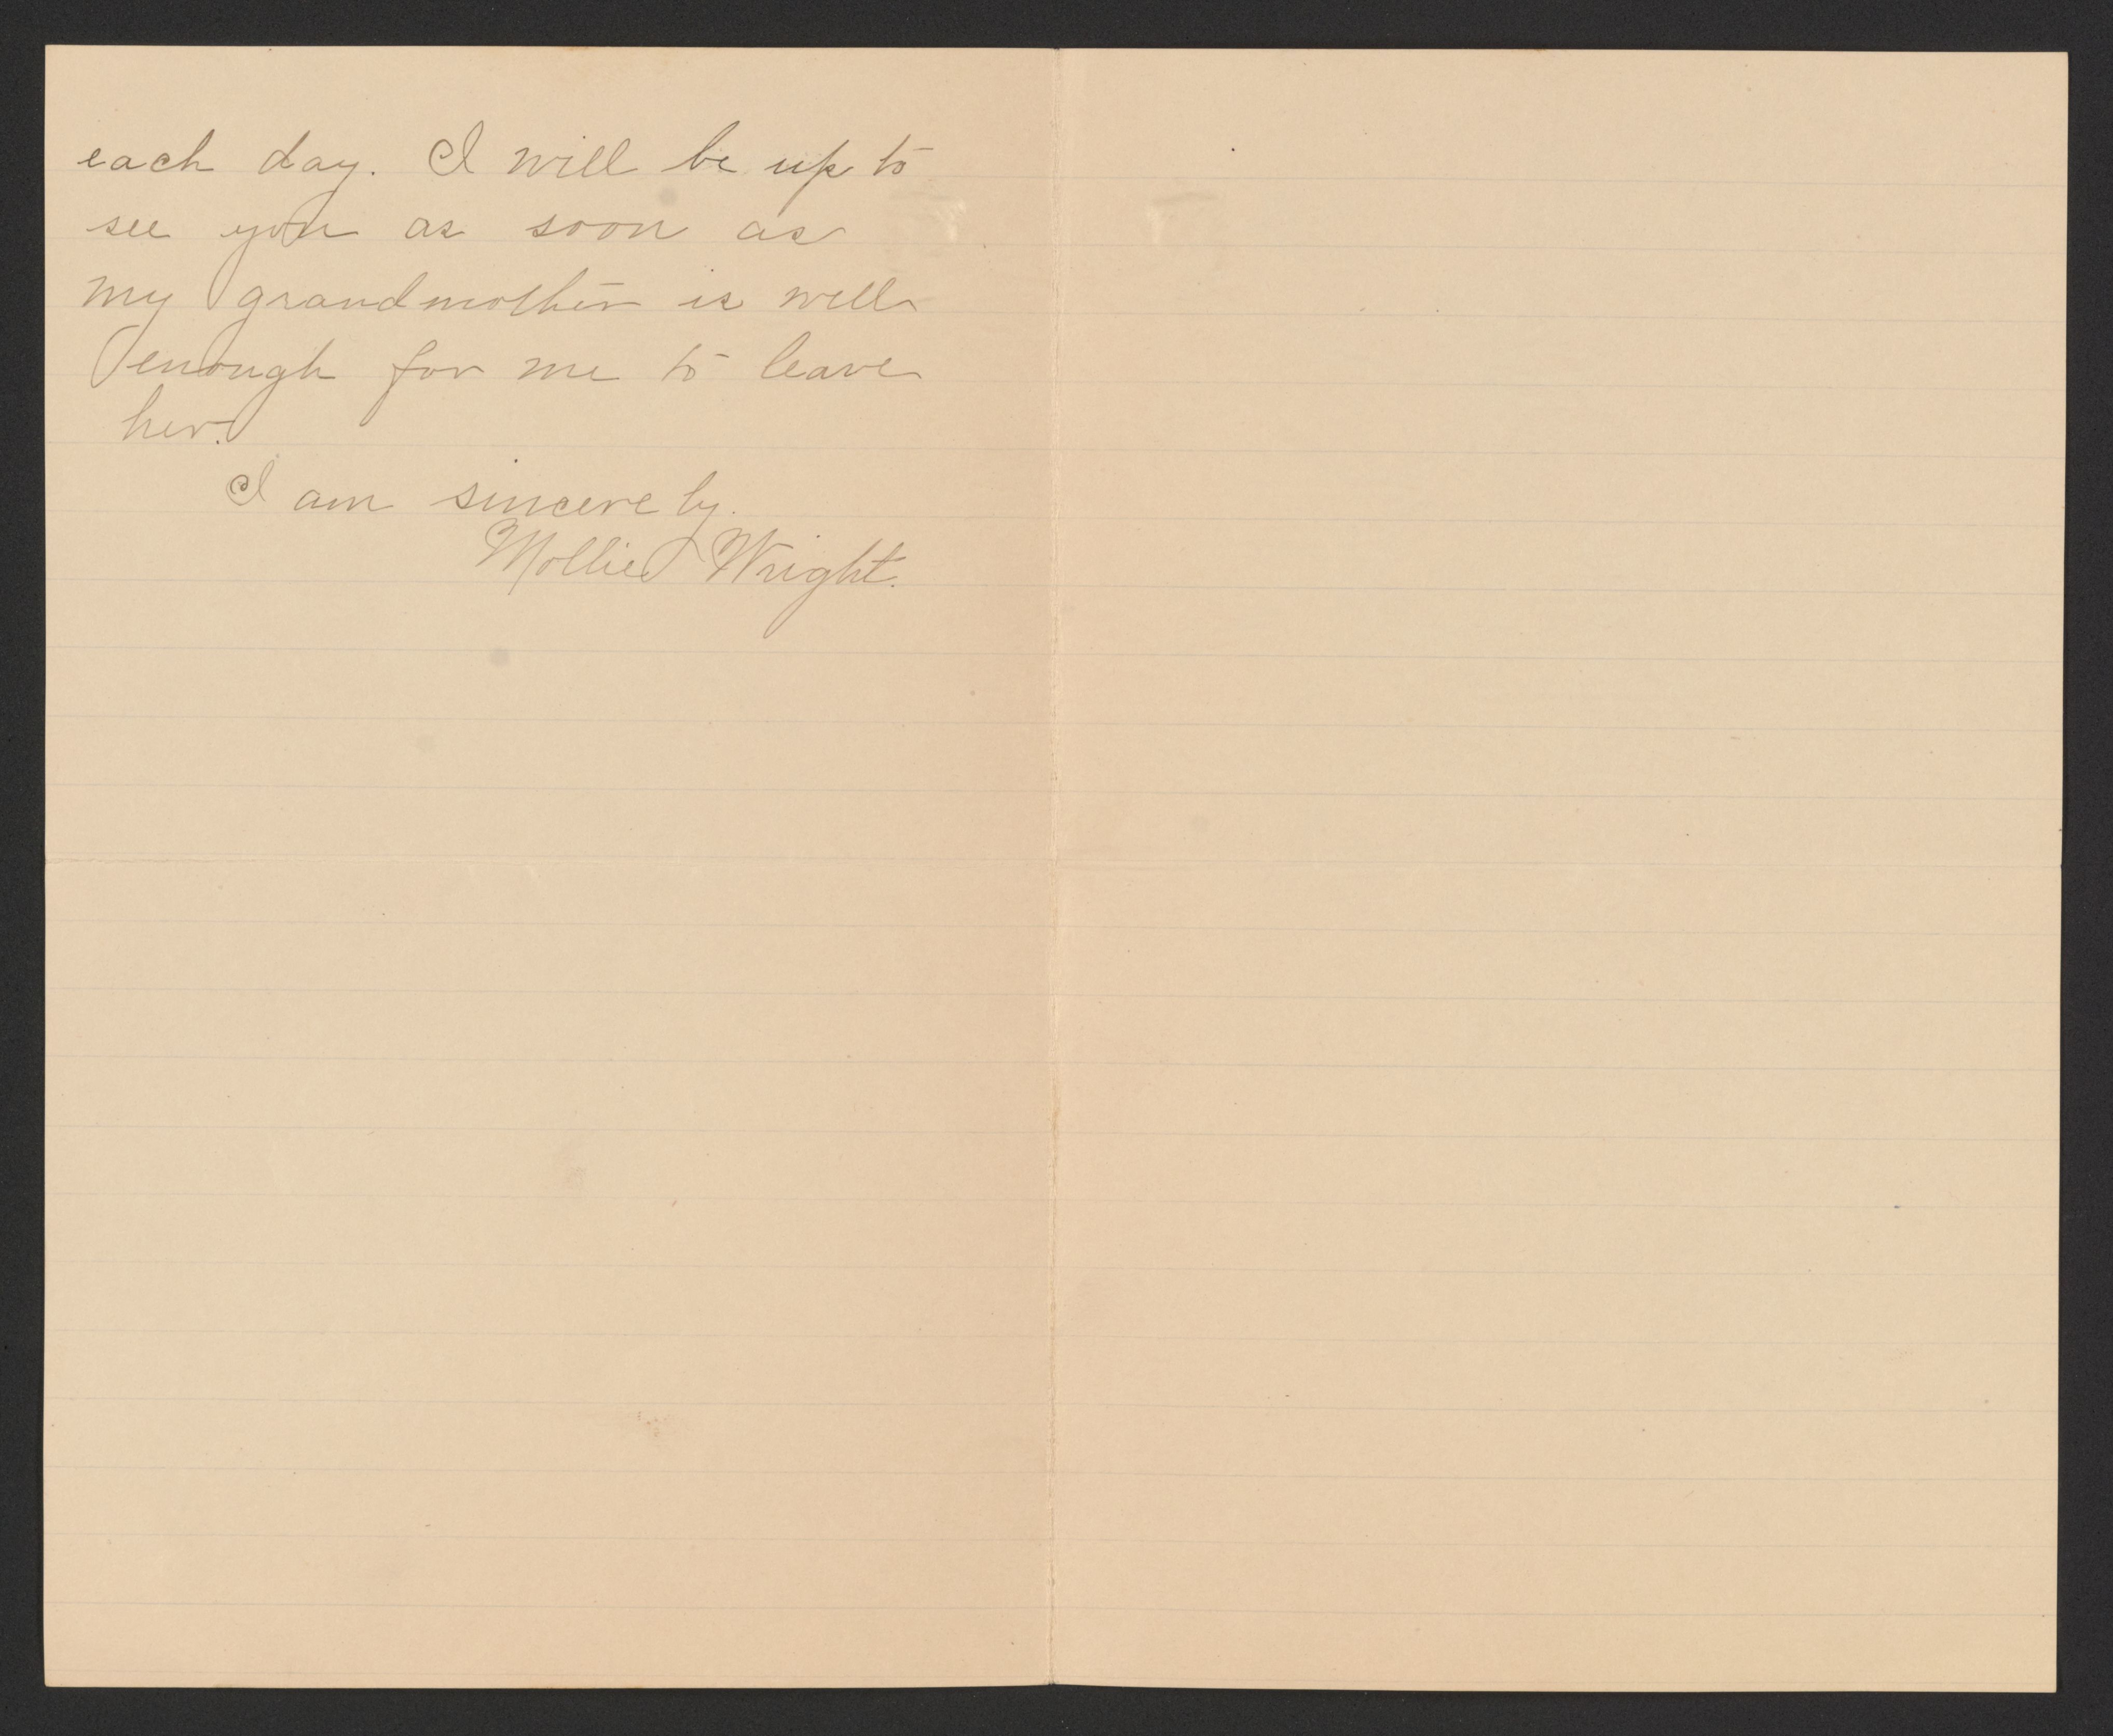 each day. I will be up to
see you as soon as
my grandmother is well
enough for me to leave
her.
I am sincerely.
Mollie Wright.